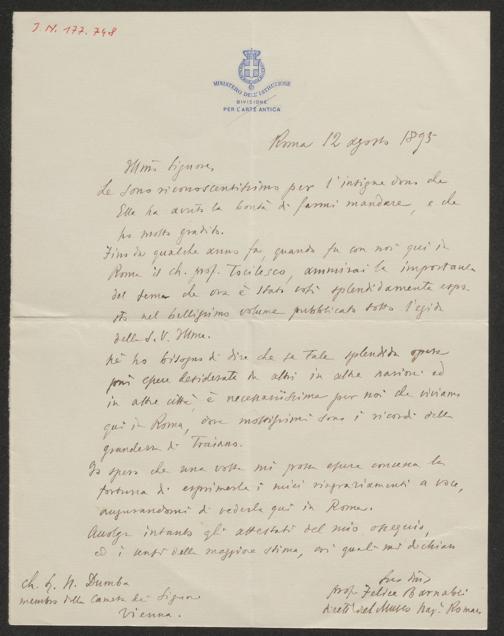 I.N. 177.748
MINISTERO DELL'ISTRUZIONE
DIVISIONE
PER L'ARTE ANTICA
Roma 12 agosto 1895
Illmo Signore,
Le sono riconoscentissimo per l'insigne dono che
Ella ha avuto la bontà di farmi mandare, e che
ho molto gradito.
Fino da qualche anno fa, quando fu con noi qui in
Roma il ch. prof. Tocilesco, ammirai la importanza
del tema che ora è stato così splendidamente espo
sto nel bellissimo volume pubblicato sotto l'egida
della S. V. Illma.
Nè ho bisogno di dire che se tale splendida opera
può essere desiderata da altri in altre nazioni ed
in altre città, è necessarissima per noi che viviamo
qui in Roma, dove moltissimi sono i ricordi della
grandezza di Traiano.
Io spero che una volta mi possa essere concessa la
fortuna di esprimerle i miei ringraziamenti a voce,
augurandomi di vederla qui in Roma.
Accolga intanto gli attestati del mio ossequio,
ed i sensi della maggiore stima, coi quali mi dichiaro
Suo
prof. Felice Barnabei
dirett. del Museo Naz. Romano
Ch. S. N. Dumba
membro della Camera dei Signori
Vienna.